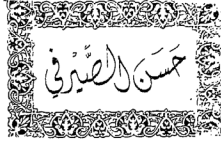 حَسَن الصَّيْرفي